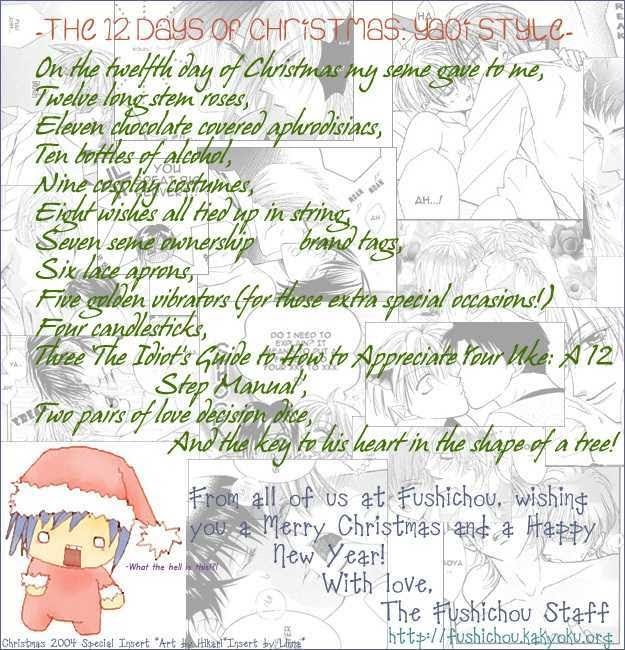 -The 12 Days of Christmas: Yaoi Style-
On the twelfth day of Christmas my seme gave to me,
Twelve long stem roses,
Eleven chocolate covered aphrodisiacs,
Ten bottles of alcohol,
Nine cosplay costumes,
Eight wishes all tied up in string,
Seven seme ownership brand tags,
Six lace aprons,
Five golden vibrators (for those extra special occasions!)
Four candlesticks,
Three 'The Idiot's Guide to How to Appreciate Your Uke: A 12
Step Manual',
Two pairs of love decision dice,
And the key to his heart in the shape of a tree!
HA!
AH...!
YOU
DO I NEED TO
EXPLAIN? IT
From all of us at Fushichou, wishing
you a Merry Christmas and a Happy
New Year!
With love,
The Fushichou Staff
http://fushichou.kakyoku.org
-What the hell is this!?!
Christmas 2004 Special Insert *Art by Hikari*Insert by